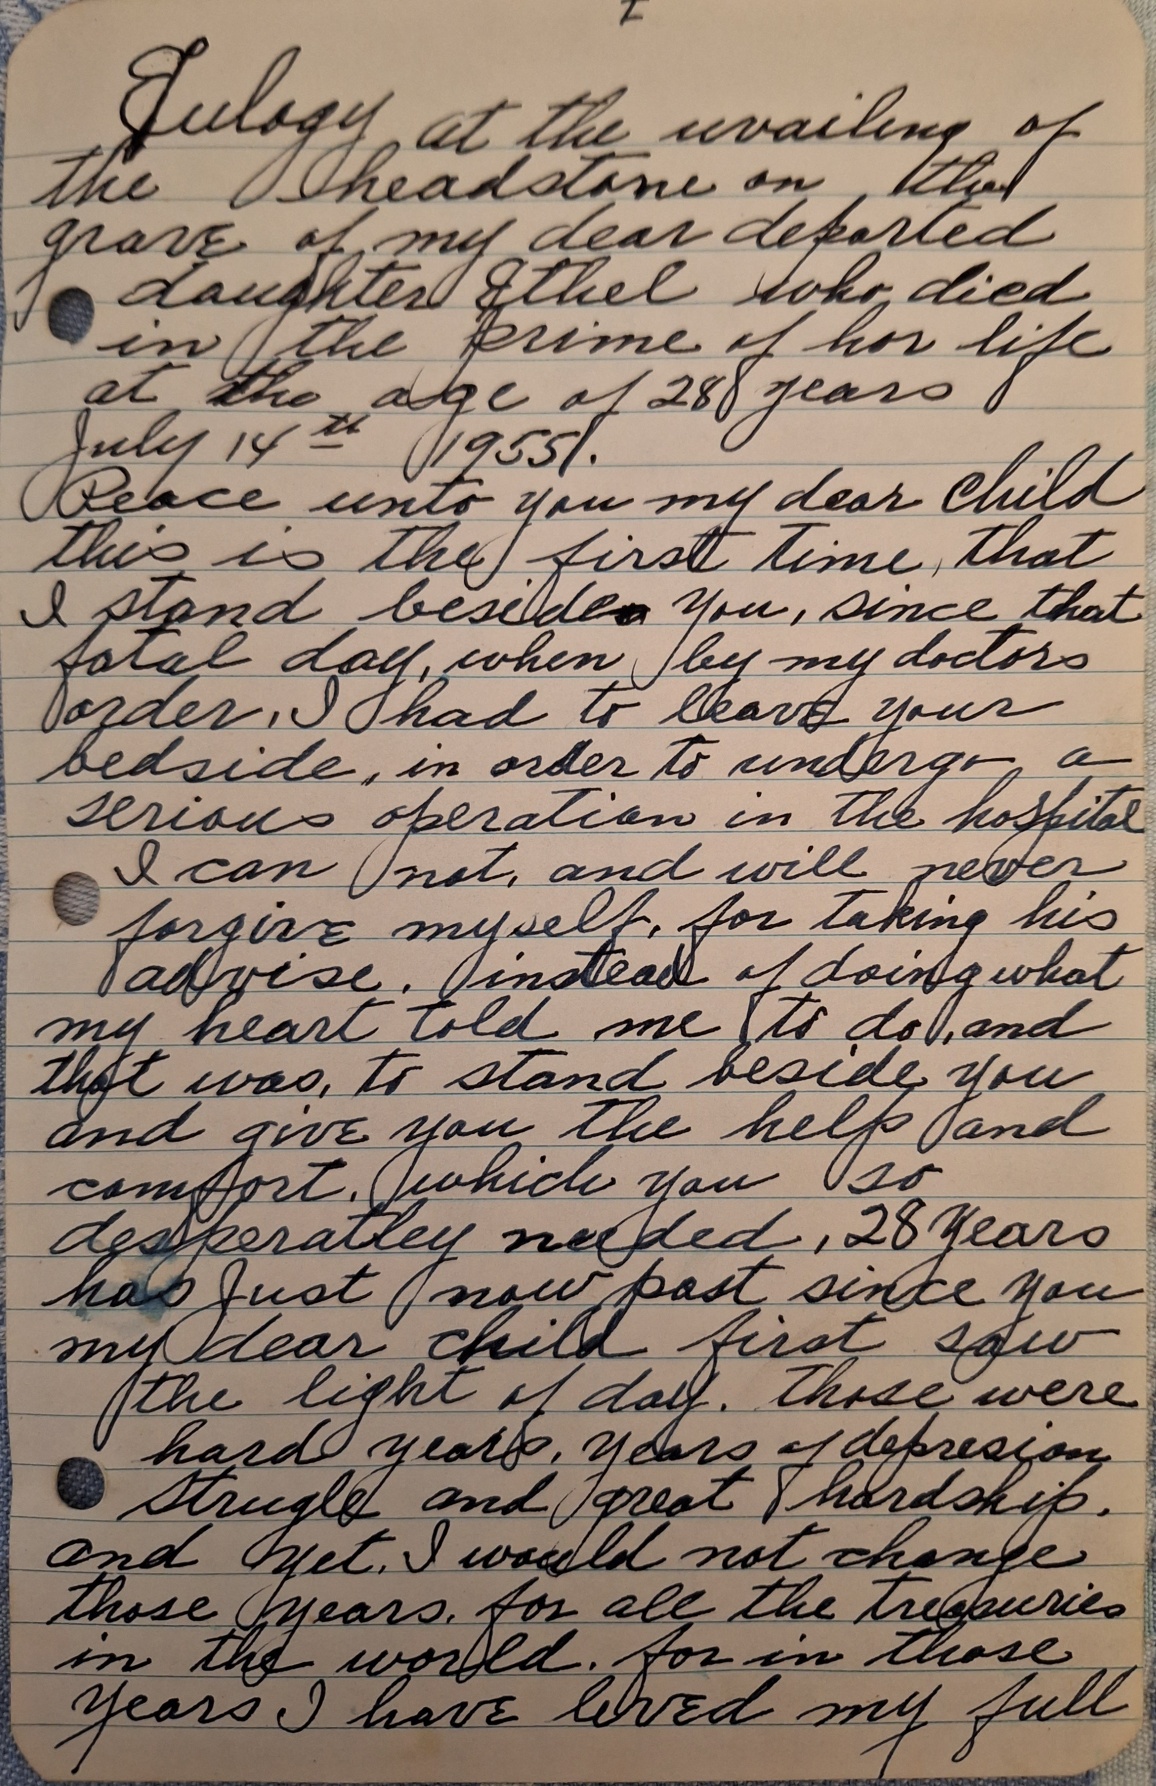 I
Eulogy at the uvailing of
the headstone on the
grave of my dear departed
daughter Ethel who died
in the prime of her life
at the age of 28 years
July 14th 1955.
Peace unto you my dear child
this is the first time, that
I stand beside you, since that
fatal day, when by my doctors
order, I had to leave your
bedside, in order to undergo a
serious operation in the hospital
I can not, and will never
forgive myself, for taking his
advise. instead of doing what
my heart told me to do, and
that was, to stand beside you
and give you the help and
comfort. which you so
desperatley needed, 28 years
has Just now past since you
my dear child first saw
the light of day. those were
hard years, years of depresion
strugle and great hardship.
and yet. I would not change
those years. for all the treasuries
in the world. for in those
years I have lived my full